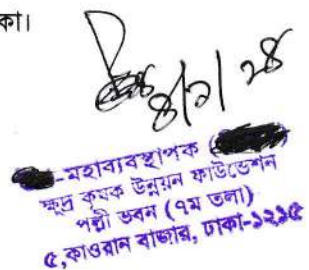 কা।
৪/১/২৪
-মহাব্যবস্থাপক (
ক্ষুদ্র কৃষক উন্নয়ন ফাউন্ডেশন
পল্লী ভবন (৭ম তলা)
৫,কাওরান বাজার, ঢাকা-১২১৫